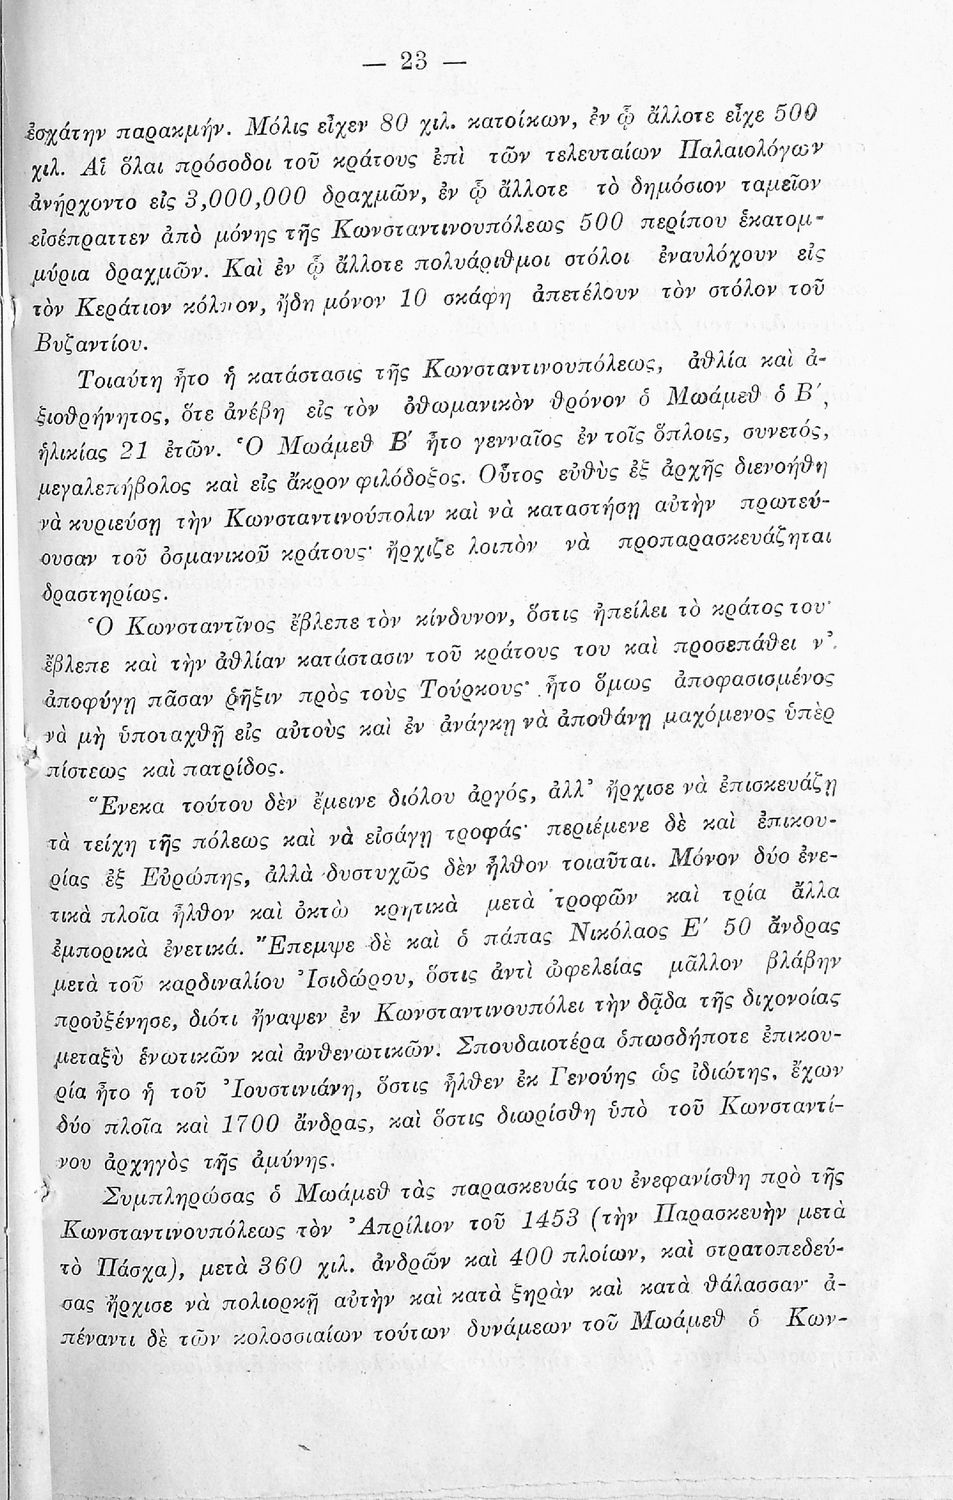 — 23 —
ἐσχάτην παρακμήν. Μόλις εἶχεν 80 χιλ. κατοίκων, ἐν ᾧ ἄλλοτε εἶχε 500
χιλ. Αἱ ὅλαι πρόσοδοι τοῦ κράτους ἐπὶ τῶν τελευταίων Παλαιολόγων
ἀνήρχοντο εἰς 3,000,000 δραχμῶν, ἐν ᾧ ἄλλοτε τὸ δημόσιον ταμεῖον
εἰσέπραττεν ἀπὸ μόνης τῆς Κωνσταντινουπόλεως 500 περίπου ἑκατομ-
μύρια δραχμῶν. Καὶ ἐν ᾧ ἄλλοτε πολυάριθμοι στόλοι ἐναυλόχουν εἰς
τὸν Κεράτιον κόλπον, ἤδη μόνον 10 σκάφη ἀπετέλουν τὸν στόλον τοῦ
Βυζαντίου.
Τοιαύτη ἦτο ἡ κατάστασις τῆς Κωνσταντινουπόλεως, ἀθλία καὶ ἀ-
ξιοθρήνητος, ὅτε ἀνέβη εἰς τὸν ὀθωμανικὸν θρόνον ὁ Μωάμεθ ὁ Β΄,
ἡλικίας 21 ἐτῶν. Ὁ Μωάμεθ Β΄ ἦτο γενναῖος ἐν τοῖς ὅπλοις, συνετός,
μεγαλεπήβολος καὶ εἰς ἄκρον φιλόδοξος. Οὗτος εὐθὺς ἐξ ἀρχῆς διενοήθη
νὰ κυριεύσῃ τὴν Κωνσταντινούπολιν καὶ νὰ καταστήσῃ αὐτὴν πρωτεύ-
ουσαν τοῦ ὀσμανικοῦ κράτους· ἤρχιζε λοιπὸν νὰ προπαρασκευάζηται
δραστηρίως.
Ὁ Κωνσταντῖνος ἔβλεπε τὸν κίνδυνον, ὅστις ἠπείλει τὸ κράτος του·
ἔβλεπε καὶ τὴν ἀθλίαν κατάστασιν τοῦ κράτους του καὶ προσεπάθει ν᾿
ἀποφύγῃ πᾶσαν ῥῆξιν πρὸς τοὺς Τούρκους· ἦτο ὅμως ἀποφασισμένος
νὰ μὴ ὑποταχθῇ εἰς αὐτοὺς καὶ ἐν ἀνάγκῃ νὰ ἀποθάνῃ μαχόμενος ὑπὲρ
πίστεως καὶ πατρίδος.
Ἕνεκα τούτου δὲν ἔμεινε διόλου ἀργός, ἀλλ᾿ ἤρχισε νὰ ἐπισκευάζῃ
τὰ τείχη τῆς πόλεως καὶ νὰ εἰσάγῃ τροφάς· περιέμενε δὲ καὶ ἐπικου-
ρίας ἐξ Εὐρώπης, ἀλλὰ δυστυχῶς δὲν ἦλθον τοιαῦται. Μόνον δύο ἐνε-
τικὰ πλοῖα ἦλθον καὶ ὀκτὼ κρητικὰ μετὰ τροφῶν καὶ τρία ἄλλα
ἐμπορικὰ ἐνετικά. Ἔπεμψε δὲ καὶ ὁ πάπας Νικόλαος Ε΄ 50 ἄνδρας
μετὰ τοῦ καρδιναλίου Ἰσιδώρου, ὅστις ἀντὶ ὠφελείας μᾶλλον βλάβην
προὐξένησε, διότι ἤναψεν ἐν Κωνσταντινουπόλει τὴν δᾷδα τῆς διχονοίας
μεταξὺ ἑνωτικῶν καὶ ἀνθενωτικῶν. Σπουδαιοτέρα ὁπωσδήποτε ἐπικου-
ρία ἦτο ἡ τοῦ Ἰουστινιάνη, ὅστις ἦλθεν ἐκ Γενούης ὡς ἰδιώτης, ἔχων
δύο πλοῖα καὶ 1700 ἄνδρας, καὶ ὅστις διωρίσθη ὑπὸ τοῦ Κωνσταντί-
νου ἀρχηγὸς τῆς ἀμύνης.
Συμπληρώσας ὁ Μωάμεθ τὰς παρασκευάς του ἐνεφανίσθη πρὸ τῆς
Κωνσταντινουπόλεως τὸν Ἀπρίλιον τοῦ 1453 (τὴν Παρασκευὴν μετὰ
τὸ Πάσχα), μετὰ 360 χιλ. ἀνδρῶν καὶ 400 πλοίων, καὶ στρατοπεδεύ-
σας ἤρχισε νὰ πολιορκῇ αὐτὴν καὶ κατὰ ξηρὰν καὶ κατὰ θάλασσαν· ἀ-
πέναντι δὲ τῶν κολοσσιαίων τούτων δυνάμεων τοῦ Μωάμεθ ὁ Κων-